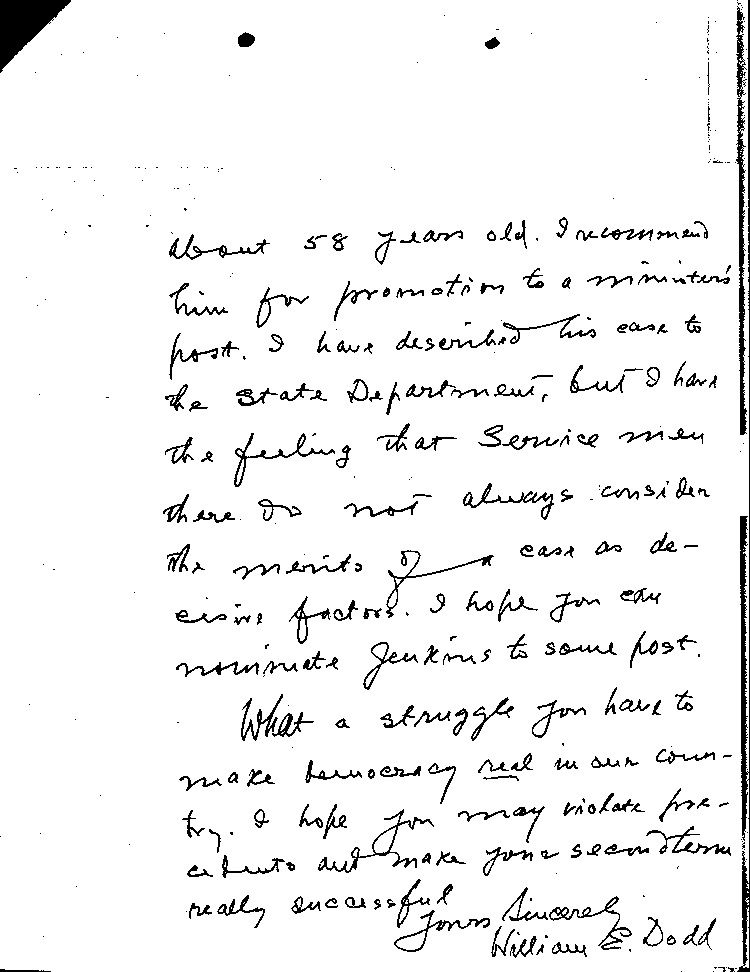 about 58 years old. I recommend
him for promotion to a minister's
post. I have described his case to
the State Department, but I have
the feeling that Service men
there do not always consider
the merits of a case as de-
cisive factors. I hope you can
nominate Jenkins to some post.
What a struggle you have to
make democracy real in our coun-
try. I hope you may violate pre-
cedents and make your second term
really successful
Yours Sincerely
William E. Dodd